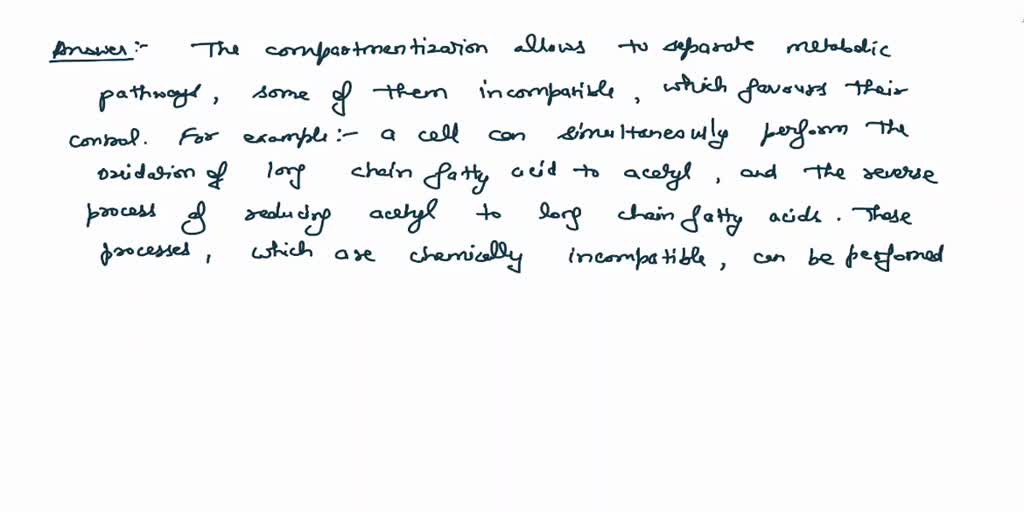 Answer:- The compartmentization allows to separate metabolic
pathways, some of them incompatible, which favours their
control. For example:- a cell can simultaneously perform the
oxidation of long chain fatty acid to acetyl, and the reverse
process of reducing acetyl to long chain fatty acids. These
processes, which are chemically incompatible, can be performed